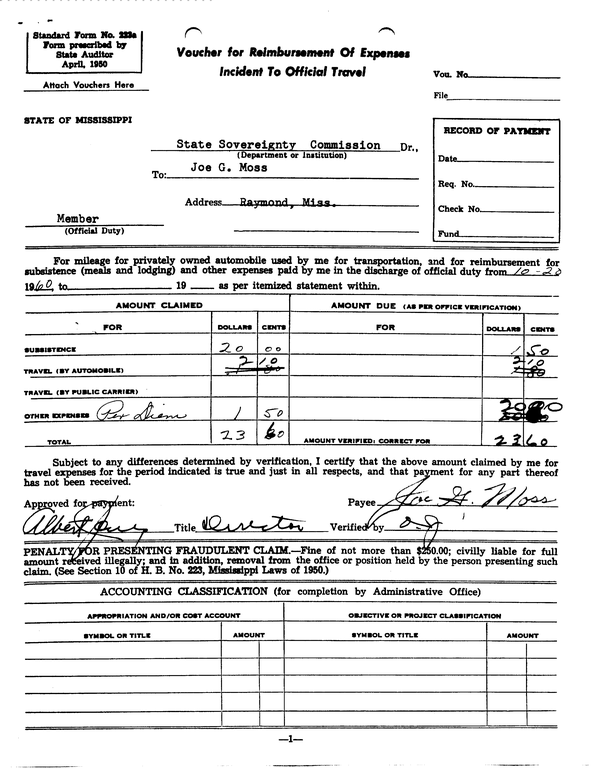 Standard Form No. 223a
Form prescribed by
State Auditor
April, 1950
Attach Vouchers Here
Voucher for Reimbursement Of Expenses
Incident To Official Travel
Vou. No.
File
STATE OF MISSISSIPPI
State Sovereignty Commission Dr.,
(Department or Institution)
To: Joe G. Moss
Address Raymond, Miss.
Member
(Official Duty)
RECORD OF PAYMENT
Date
Req. No.
Check No.
Fund
For mileage for privately owned automobile used by me for transportation, and for reimbursement for
subsistence (meals and lodging) and other expenses paid by me in the discharge of official duty from 10-20
1960, to 19 as per itemized statement within.
AMOUNT CLAIMED AMOUNT DUE (AS PER OFFICE VERIFICATION)
FOR DOLLARS CENTS FOR DOLLARS CENTS
SUBSISTENCE 20 00 1 50
TRAVEL (BY AUTOMOBILE) 2 10 2 10
TRAVEL (BY PUBLIC CARRIER)
OTHER EXPENSES Per Diem 1 50 20 00
TOTAL 23 60 AMOUNT VERIFIED: CORRECT FOR 23 60
Subject to any differences determined by verification, I certify that the above amount claimed by me for
travel expenses for the period indicated is true and just in all respects, and that payment for any part thereof
has not been received.
Approved for payment: Payee Joe G. Moss
Albert Jones Title Director Verified by
PENALTY FOR PRESENTING FRAUDULENT CLAIM.—Fine of not more than $250.00; civilly liable for full
amount received illegally; and in addition, removal from the office or position held by the person presenting such
claim. (See Section 10 of H. B. No. 223, Mississippi Laws of 1950.)
ACCOUNTING CLASSIFICATION (for completion by Administrative Office)
APPROPRIATION AND/OR COST ACCOUNT OBJECTIVE OR PROJECT CLASSIFICATION
SYMBOL OR TITLE AMOUNT SYMBOL OR TITLE AMOUNT
—1—